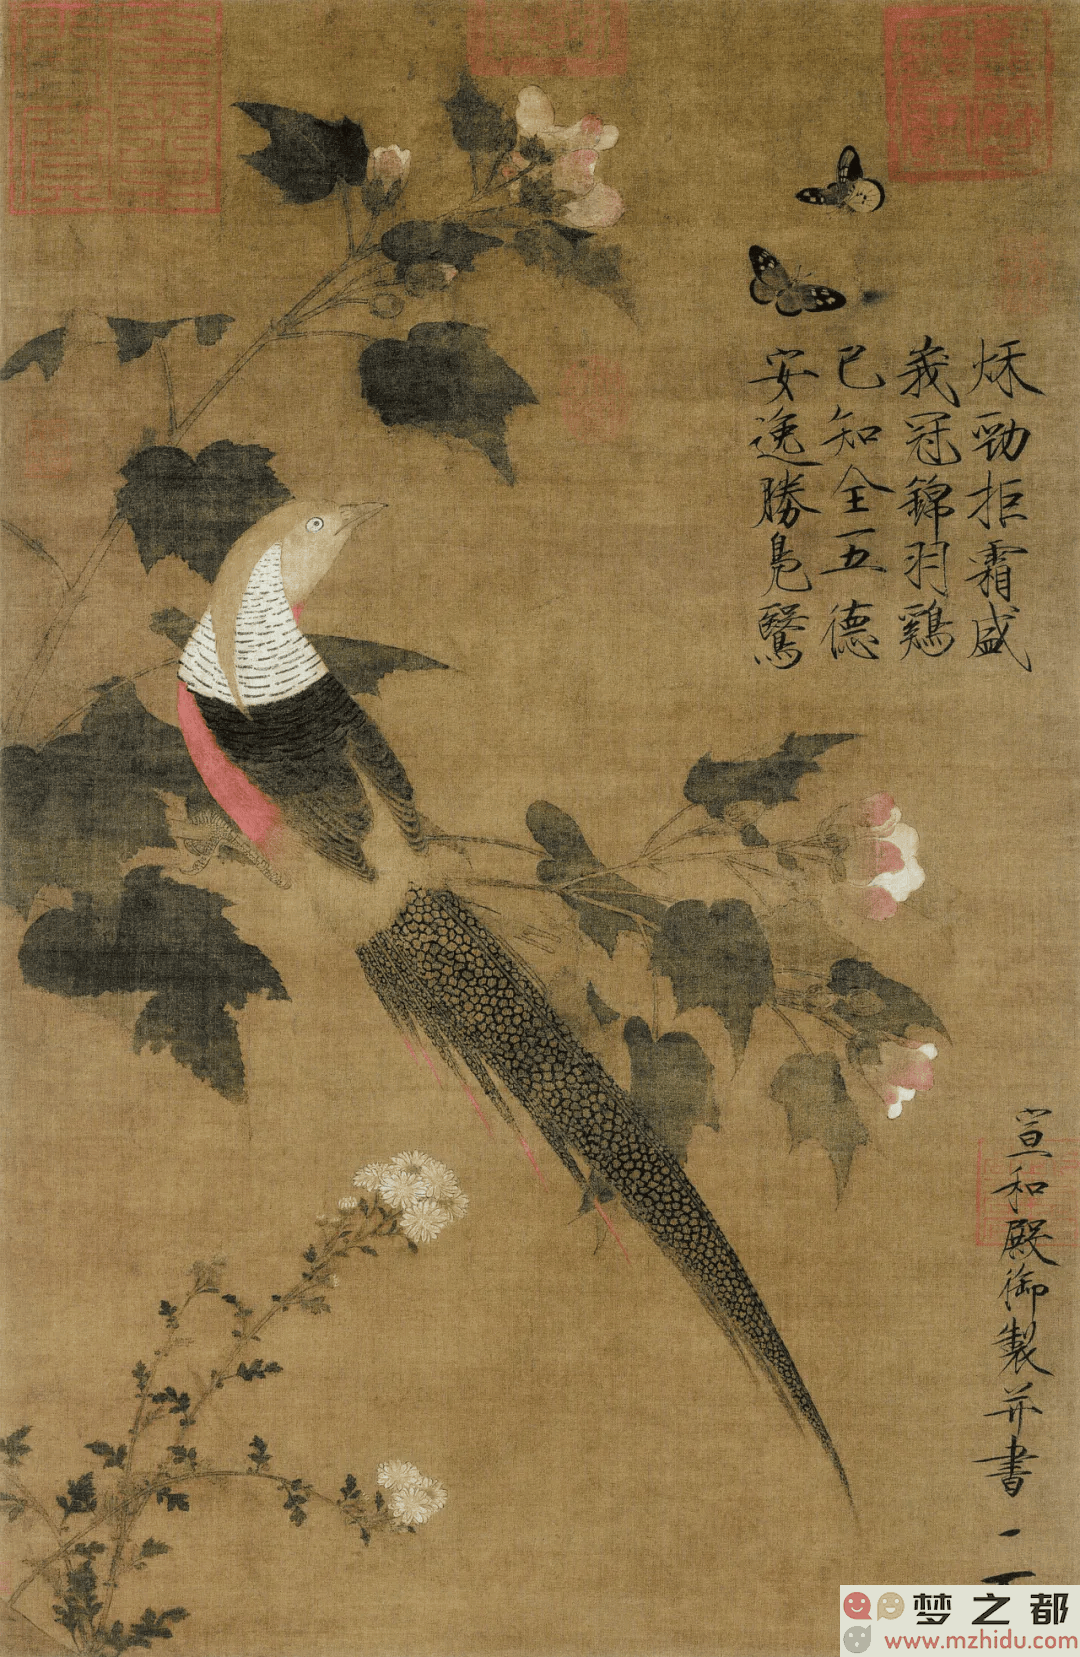 秌勁拒霜盛
峩冠錦羽鷄
已知全五德
安逸勝鳧鷖
宣和殿御製并書
梦之都
www.mzhidu.com